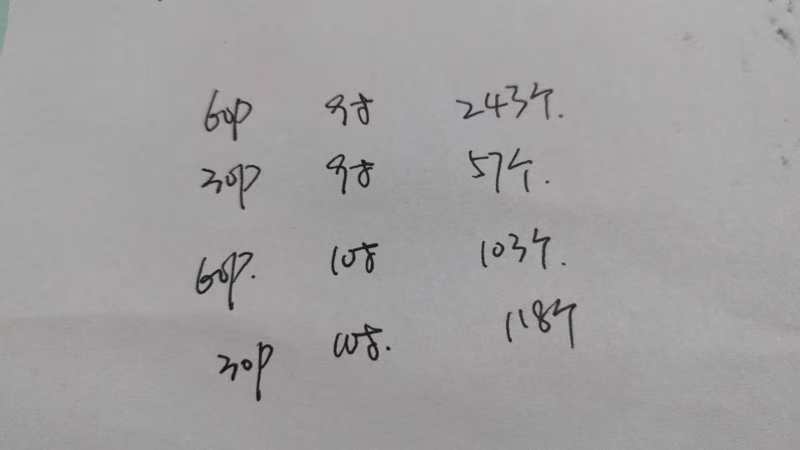 60P 9寸 243个.
30P 9寸 57个.
60P. 10寸 103个.
30P 10寸. 118个